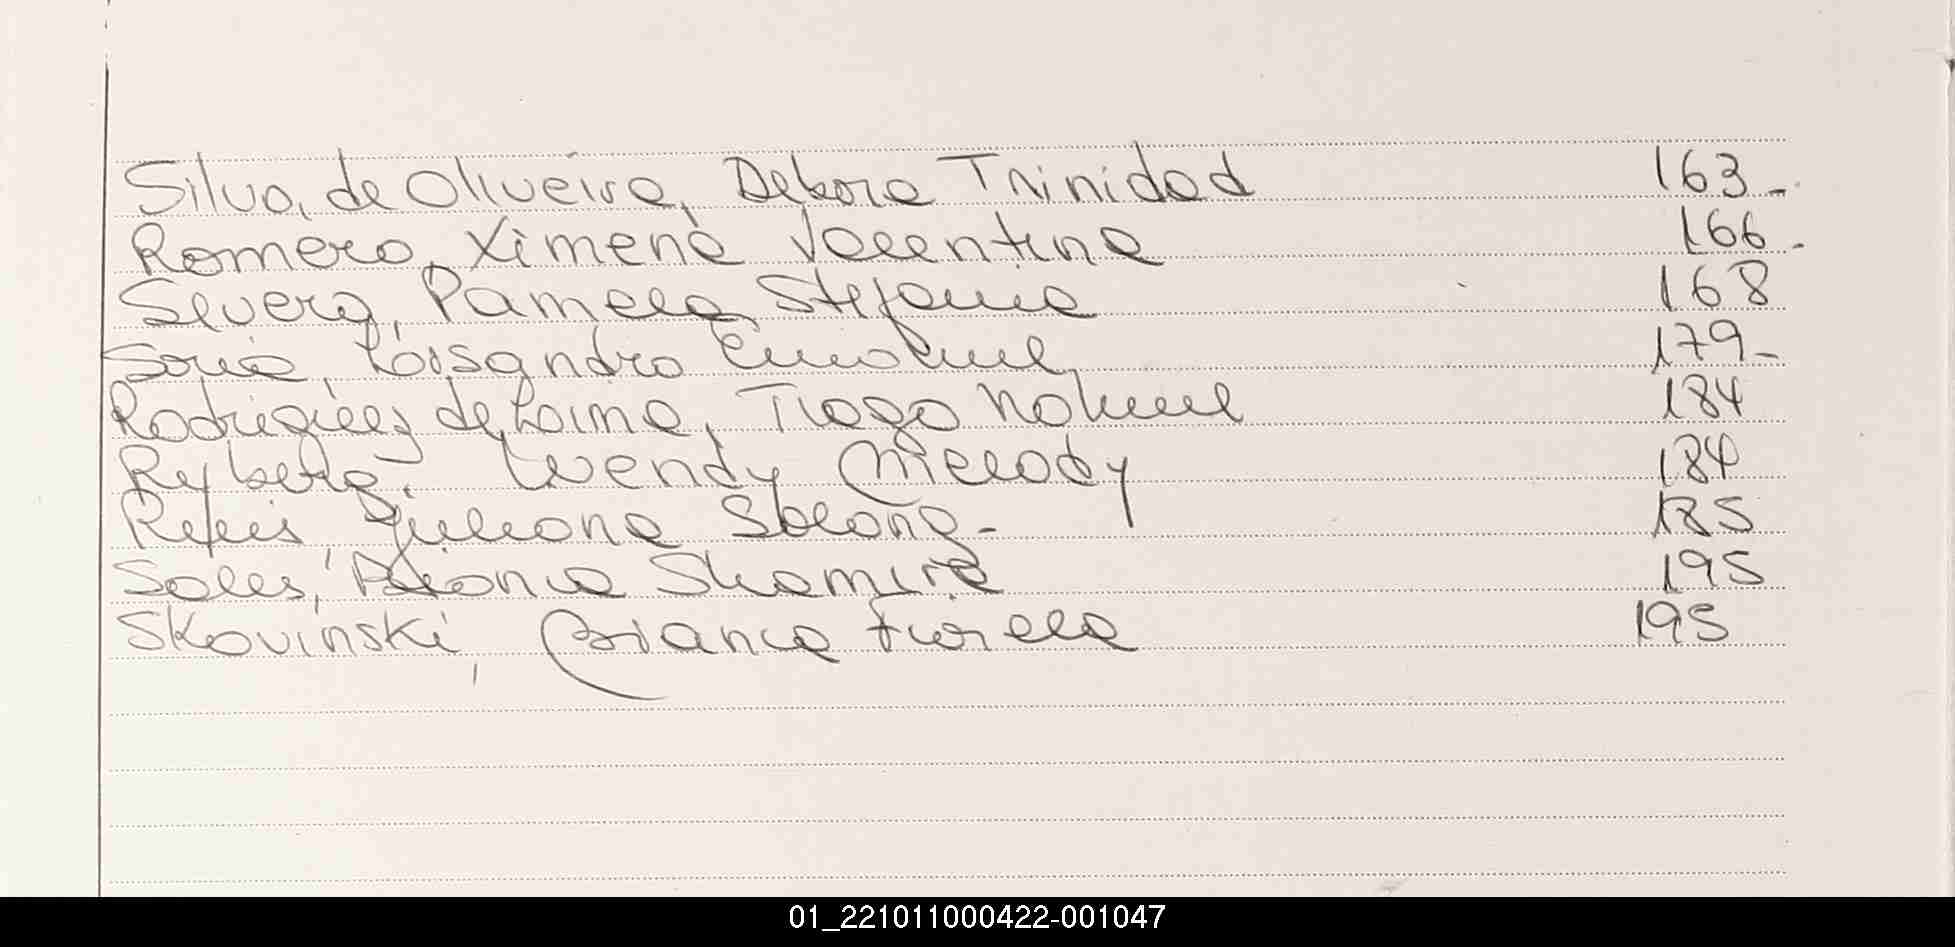 Silva, de Oliveira, Debora Trinidad 163-
Romero, Ximena Valentina 166-
Severo, Pamela Stefania 168
Soria, Lisandro 179-
Rodriguez de Lima, Tiago Nahuel 184
Ryberg, Wendy Melody 184
Juliana 185
Sales, Shamira 195
Skovinski, Bianca Fiorela 195
01_221011000422-001047